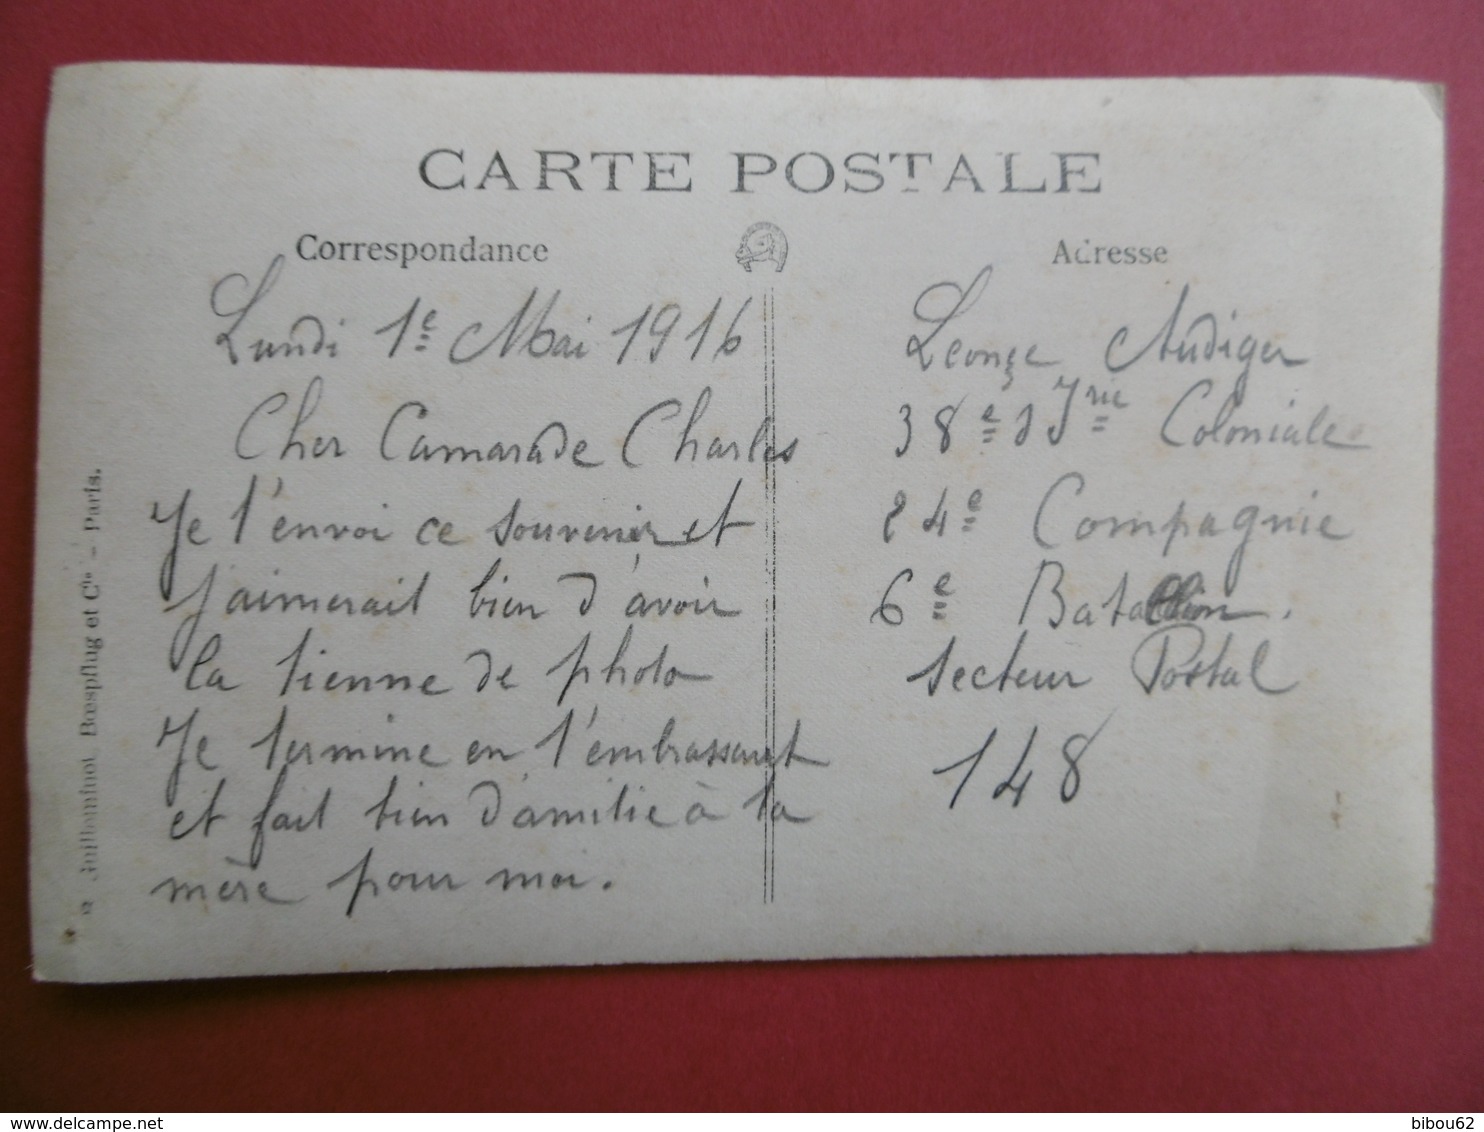 CARTE POSTALE
Correspondance
Lundi 1e Mai 1916
Cher Camarade Charles
Je t'envoi ce souvenir et
j'aimerait bien d'avoir
la tienne de photo
Je termine en t'embrassant
et fait bien d'amitie à ta
mère pour moi.
Adresse
Leonçe Audiger
38e d'Irie Coloniale
24e Compagnie
6e Bataillon.
Secteur Postal
148
Guilleminot, Bœspflug et Cie - Paris.
delcampe.net
bibou62